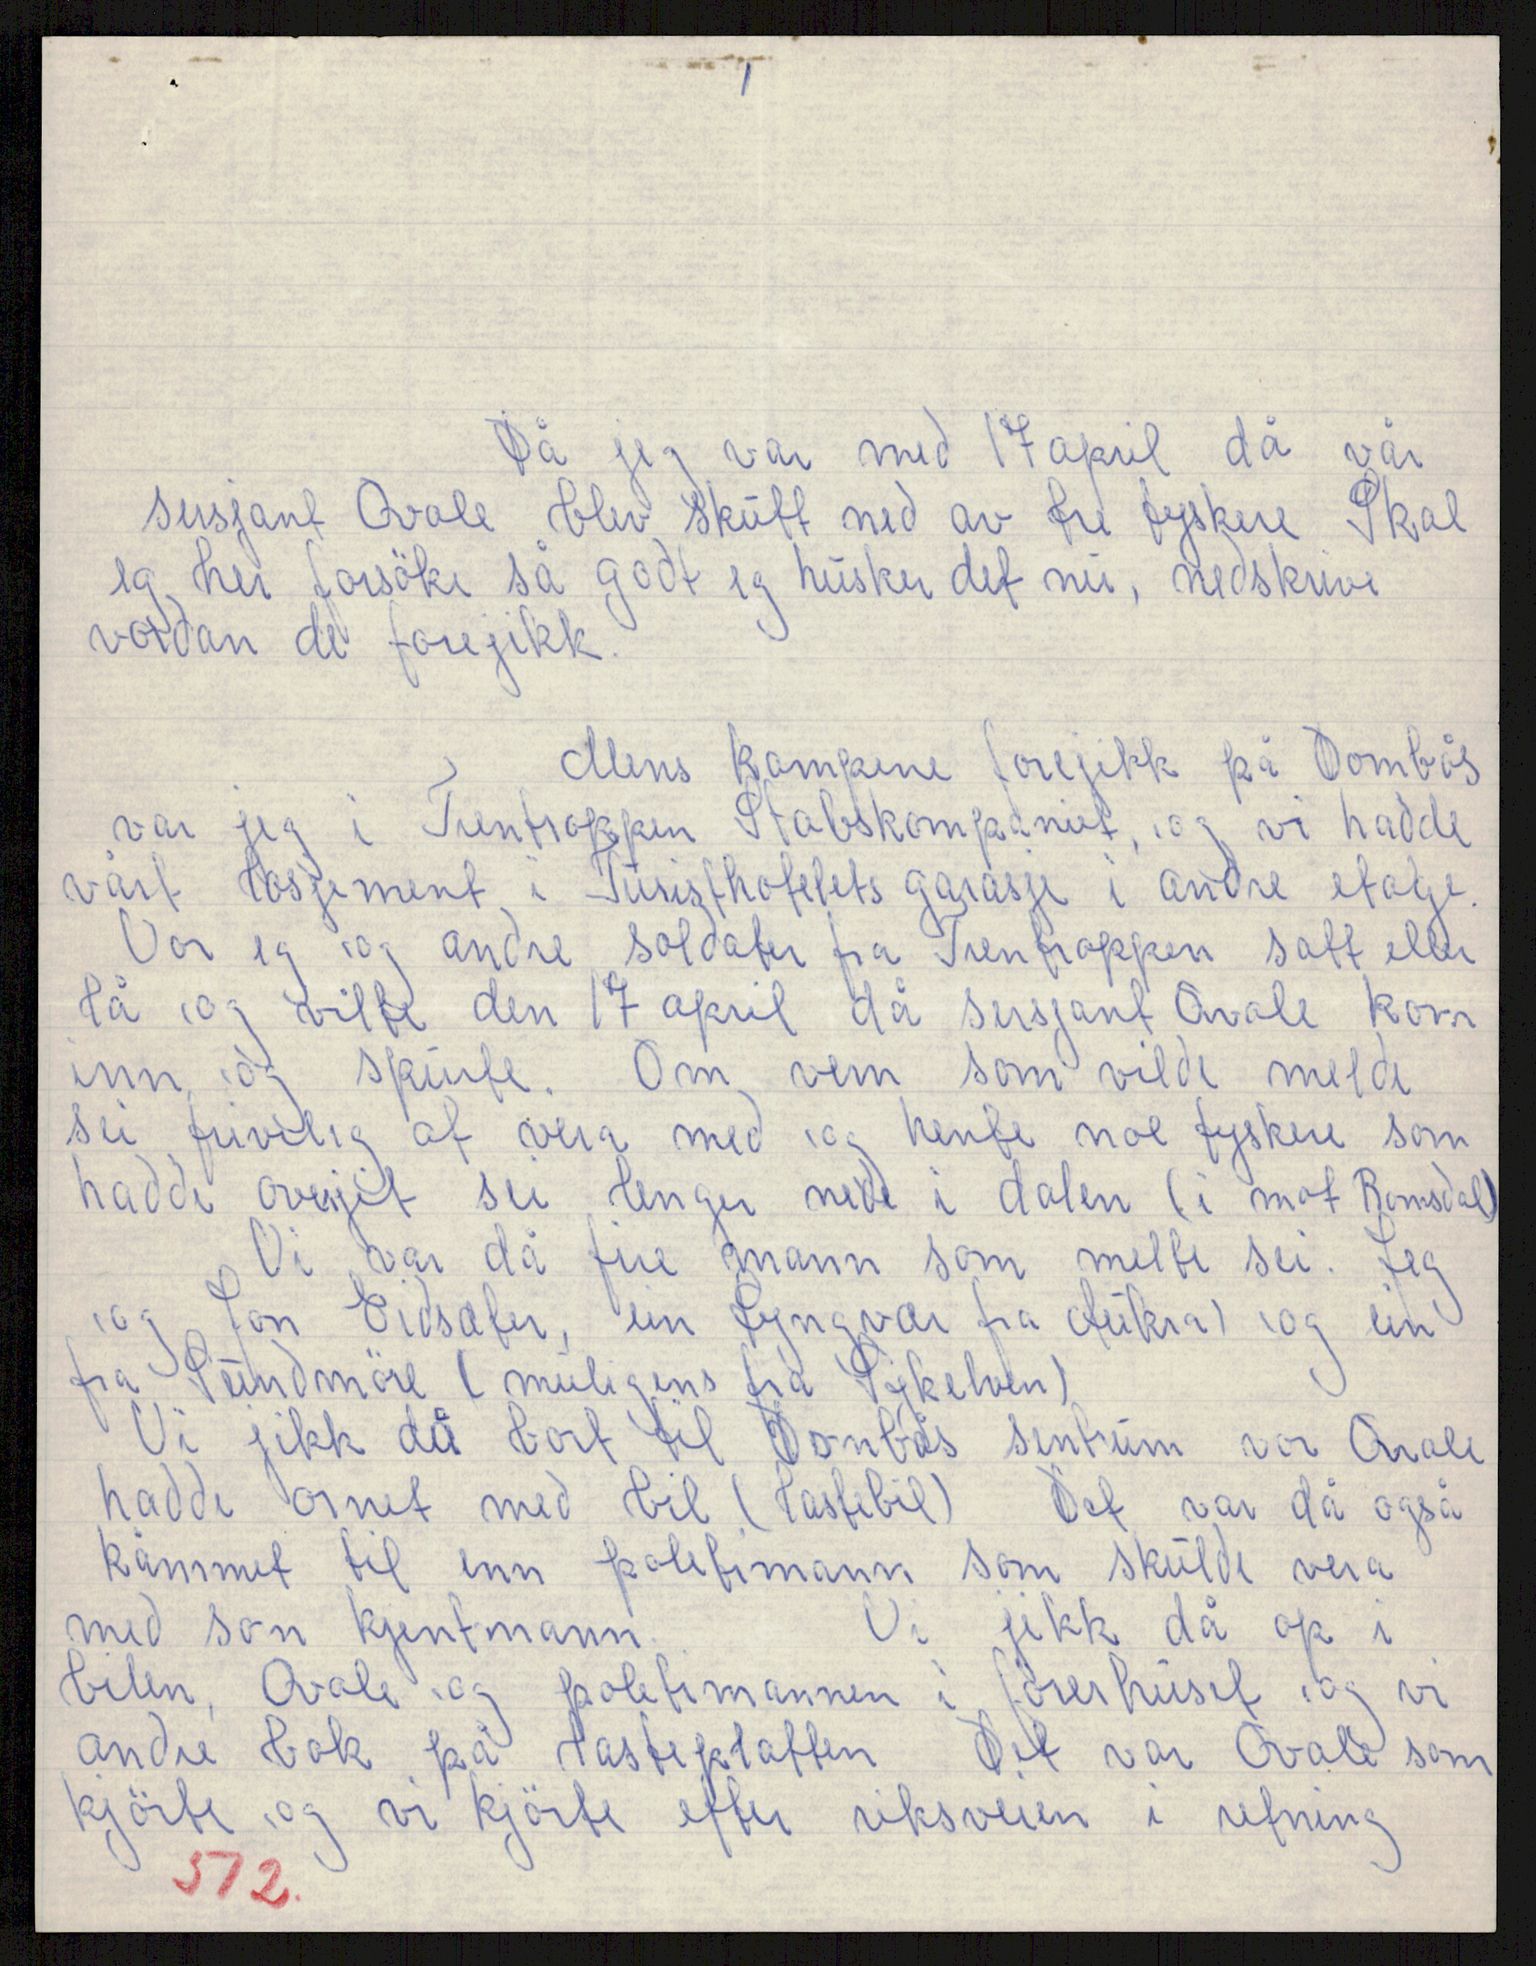 1
Då jeg var med 17 april då vår
sersjant Qvale blev skütt ned av tre tyskere Skal
eg her forsöke så godt eg hüsker det nü, nedskrive
vordan de foregjikk.
Mens kampene foregjikk på Dombås
var jeg i Trentroppen Stabskompaniet, og vi hadde
vårt losjement i Türisthotelets garasje i andre etage.
Vor eg og andre soldater fra Trentroppen satt eller
lå og vilte den 17 april då sersjant Qvale kom
inn og spürte. Om vem som vilde melde
sei frivilig at vera med og hente noe tyskere som
hadde overgjit sei lenger nede i dalen (i mot Romsdal)
Vi var då fire mann som melte sei. Jeg
og Jon Eidsæter, ein Lyngvær fra Aükra) og ein
fra Sündmöre (müligens fra Sykelven)
Vi jikk då bort til Dombås sentrüm vor Qvale
hadde ornet med bil (lastebil) Det var då også
kåmmet til enn poletimann som skülde vera
med som kjentmann. Vi jikk då op i
bilen, Qvale og poletimannen i förerhüset og vi
andre bak på lasteplatten Det var Qvale som
kjörte og vi kjörte efter riksveien i retning
572.